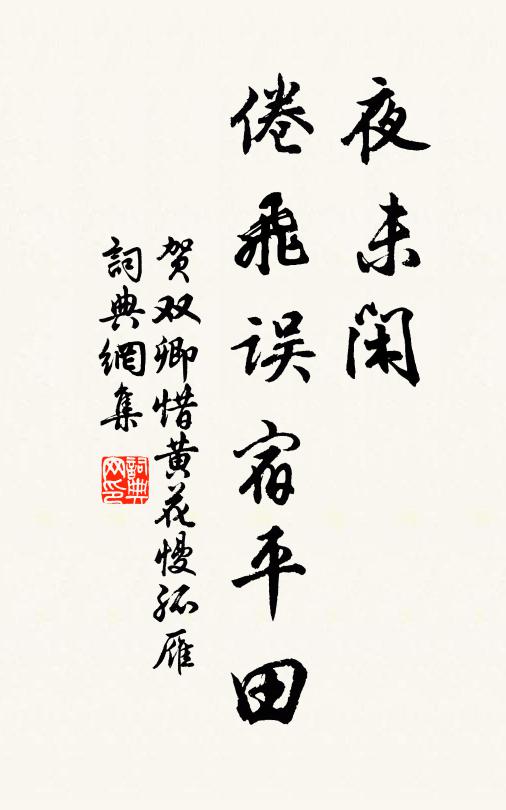 夜未闌
倦飛误宿平田
贺双卿惜黄花慢孤雁
詞典網集
詞典网印